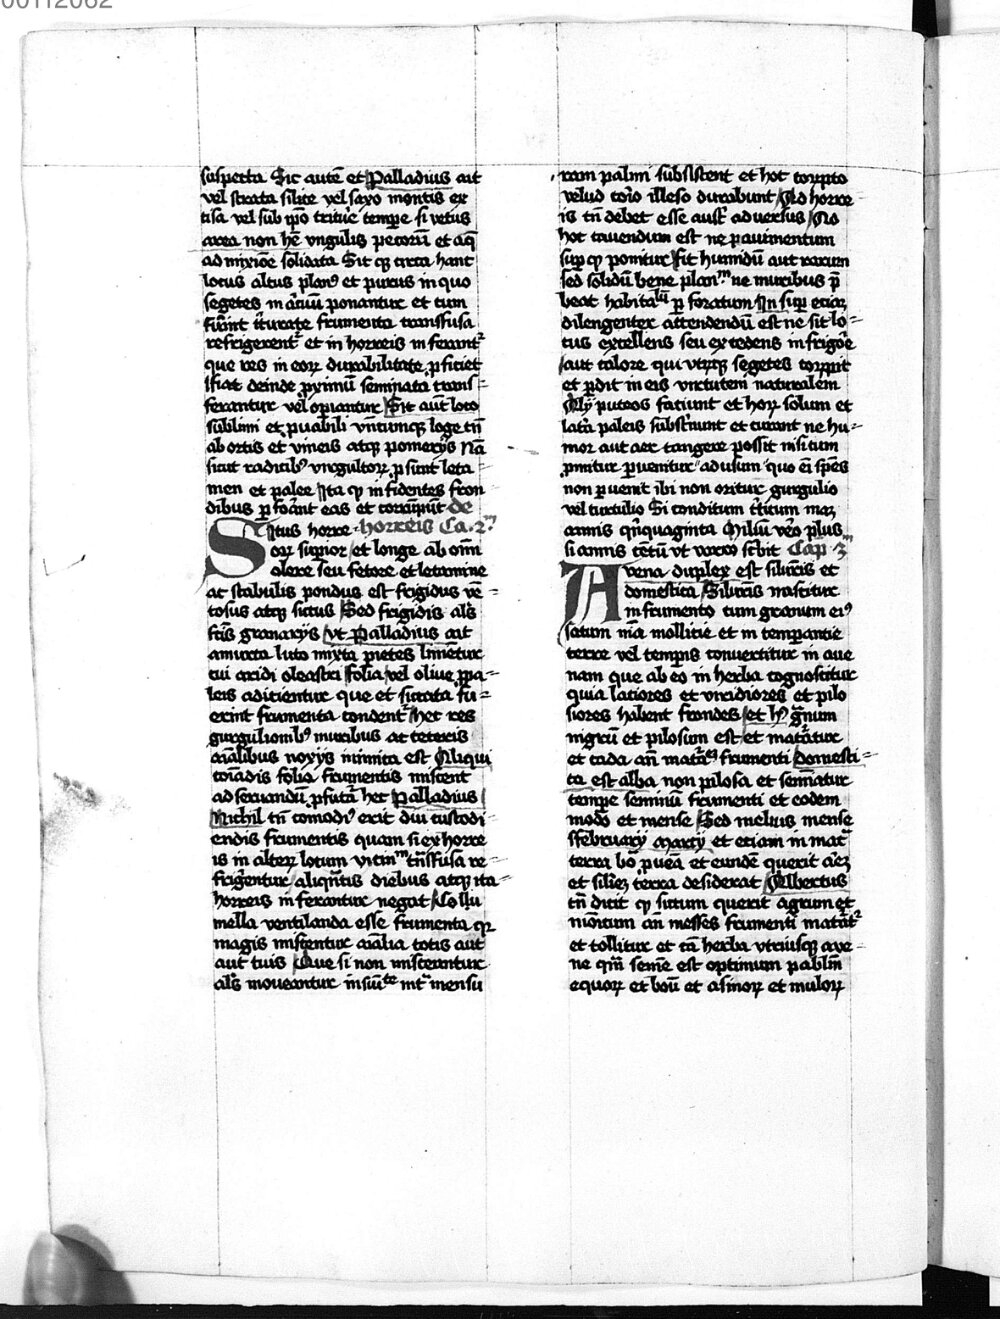 suspecta Sic autē et Palladius ait
vel strata silice vel saxo montis ex
cisa vel sub ip̄o triture tempe si vetus
area non hē vngulis pecorū et aq̄
ad mixcōe solidata Sit q̨ circa hanc
locus altus planꝰ et purus in quo
segetes in aruū ponantur et cum
fuīnt triturate frumenta transfusa
refrigerent᷑ et in horreis inferant᷑
que res in eoꝝ durabilitate ꝓficiet
Fiat deinde pximū seminata trans=
ferantur vel opiantur Sit aut̄ loco
sublimi et puabili vn̄tumq̨ loge tn̄
ab ortis et vineis atq̨ pomerijs Nā
sicut radicibꝰ virgultoꝝ psunt leta=
men et palee Ita q̨ insidentes fron
dibus pforānt eas et corrūpūt de
Situs horre horreis Ca. 2m
oꝝ supior et longe ab omī
olere seu fetore et letamine
ac stabulis pondus est frigidus vē=
tosus atq̨ siccus Sed frigidis als̄
fc̄is granarijs vt Palladius ait
amurca luto mixta pietes linētur
cui aridi oleastri folia vel olive ꝓpa=
leis adicientur que et siccata fu=
erint frumenta condent᷑ Hec res
gurgulionibꝰ muribus ac ceteris
aīalibus noxijs inimica est Aliqui
coriādis folia frumentis miscent
ad seruandū pfutā hec Palladius
Nichil tn̄ comodiꝰ erit diu custodi
endis frumentis quam si ex horre
is in alteꝝ locum vicinm tn̄sfusa re=
frigentur aliqn̄tis diebus atq̨ ita=
horreis inferantur negat Collu
mella ventilanda esse frumenta qꝛ
magis miscentur aīalia totis aut
aut tuis Que si non miscerentur
als̄ moueantur in suītate int᷑ mensu
ram palmi subsistent et hoc corpto
velud corio illeso durabunt Sed horre
is tn̄ debet esse aust᷑ aduersus Ad
hoc cauendum est ne pauimentum
sup q̨ ponitur sit humidū aut rarum
sed solidū bene planm ne muribus p̄
beat habitaclū pforatum In sup eciā
diligenter attendendū est ne sit lo=
cus excellens seu excedens in frigōe
aut calore qui vterq̨ segetes corrupit
et pdit in eis virtutem naturalem
Alij puteos faciunt et hoꝝ solum et
latā paleis substīunt et curant ne hu=
mor aut aer tangere possit nisi cum
pmitur puenitur ad usum quo ei spēs
non puenit ibi non oritur gurgulio
vel curculio Si conditum tīticum maꝝ
annis qn̄quaginta Miliū vēo plus
si annis cētū vt varro scbit Cap̄ 3m
Avena duplex est siluīcis et
domestica Siluīcis nascitur
in frumento cum granum eiꝰ
satum nīa mollicie et in temperantie
terre vel tempis conuertitur in aue
nam que ab eo in herba cognoscitur
quia laciores et viridiores et pilo
siores habent frondes et hꝫ ḡnum
nigrū et pilosum est et maturatur
et cada an̄ matāꝰ frumenti domesti=
ca est alba non pilosa et semīatur
tempe semīnū frumenti et eodem
modo et mense Sed melius mense
ffebruary Marcy et eciam in mac̄
terra bō pueā et eundē querit aeꝫ
et silieꝫ terra desiderat Albertus
tn̄ dicit q̨ situm querit agrum et
montum an̄ messes frumenti matāt᷑
et tollitur et tā herba vtriusq̨ ave=
ne qm̄ semē est optimum pablm̄
equoꝝ et boū et asinoꝝ et muloꝝ